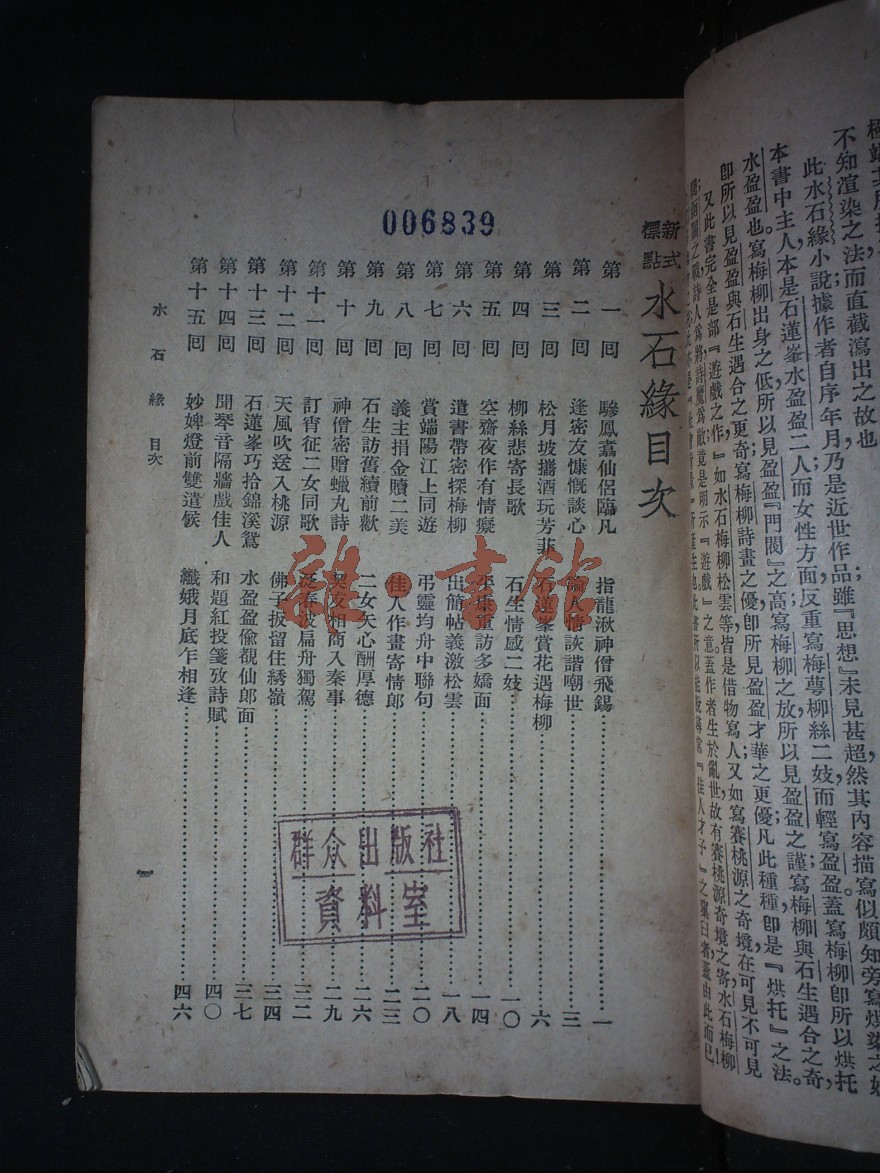 不知渲染之法而直截瀉出之故也
此水石緣小說據作者自序年月乃是近世作品雖『思想』未見甚超然其內容描寫似頗知旁寫烘染之妙
本書中主人本是石蓮峯水盈盈二人而女性方面反重寫梅萼柳絲二妓而輕寫盈盈蓋寫梅柳卽所以烘托
水盈盈也寫梅柳出身之低所以見盈盈『門閥』之高寫梅柳之放所以見盈盈之謹寫梅柳與石生遇合之奇
卽所以見盈盈與石生遇合之更奇寫梅柳詩畫之優卽所見盈盈才華之更優凡此種種卽是『烘托』之法。
又此書完全是部『遊戲之作』如水石梅柳松雲等皆是借物寫人又如寫賽桃源之奇境在可見不可見
詩人爲將詩魔爲敵竟是明示『遊戲』之意蓋作者生於亂世故有賽桃源奇境之寄水石梅柳
006839
新式標點
水石緣目次
第一回 驂鳳翥仙侶臨凡 指龍湫神僧飛錫 一
第二回 逢密友慷慨談心 人情詼諧嘲世 三
第三回 松月坡攜酒玩芳菲 石蓮峯賞花遇梅柳 六
第四回 柳絲悲寄長歌 石生情感二妓 一〇
第五回 空齋夜作有情癡 重訪多嬌面 一四
第六回 遣書帶密探梅柳 出簡帖義激松雲 一八
第七回 賞端陽江上同遊 弔靈均舟中聯句 二〇
第八回 義主捐金贖二美 佳人作畫寄情郎 二三
第九回 石生訪舊續前歡 二女矢心酬厚德 二六
第十回 神僧密贈蠟丸詩 契友相商入秦事 二九
第十一回 訂宵征二女同歌 泛春波扁舟獨駕 三二
第十二回 天風吹送入桃源 佛子扳留住綉嶺 三四
第十三回 石蓮峯巧拾錦溪鴛 水盈盈偸覩仙郎面 三七
第十四回 聞琴音隔牆戲佳人 和題紅投箋攷詩賦 四〇
第十五回 妙婢燈前雙遣候 纖娥月底乍相逢 四六
水石緣 目次
群众出版社
資料室
雜·書館